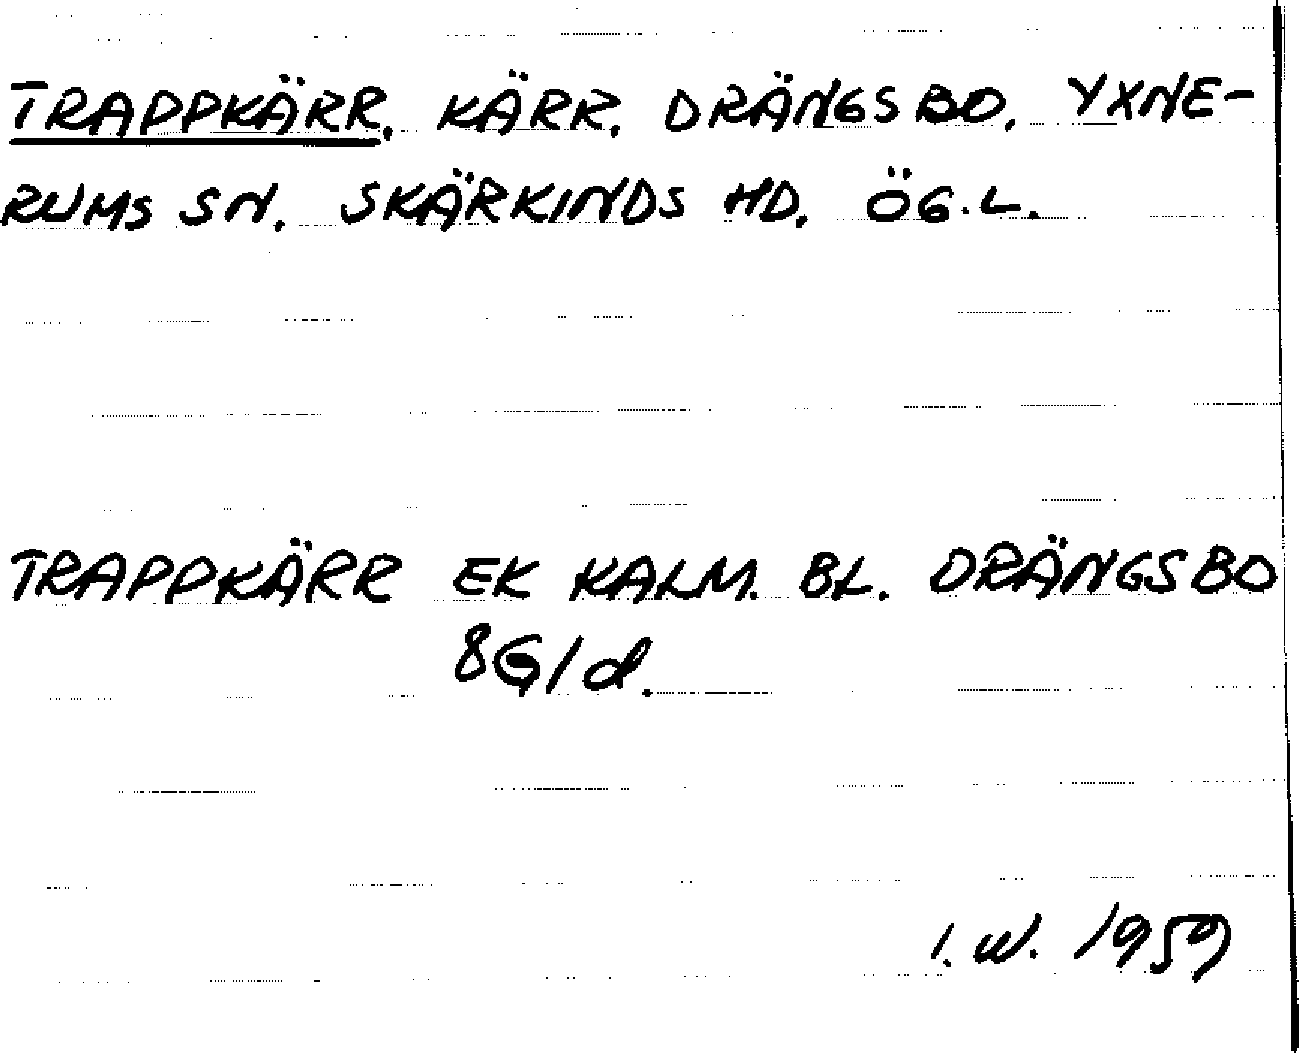 TRAPPKÄRR, KÄRR, DRÄNGSBO, YXNE-
RUMS SN, SKÄRKINDS HD, ÖG.L.
TRAPPKÄRR EK KALM. BL. DRÄNGSBO
8G1d.
I. W. 1959